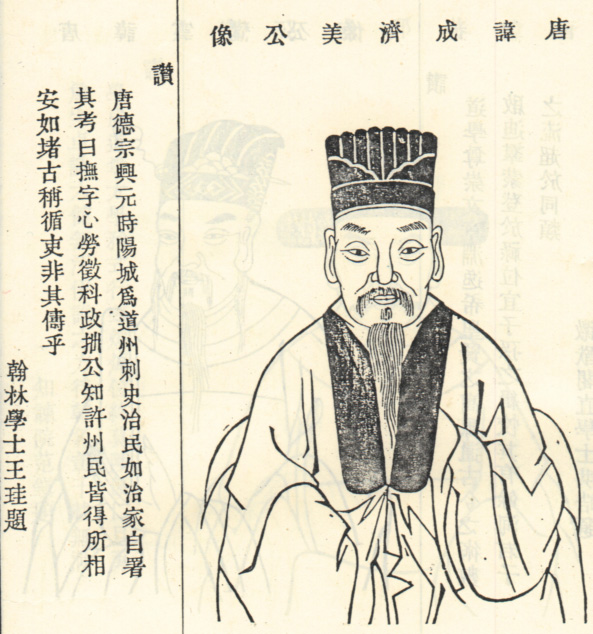 唐諱成濟美公像
讚
唐德宗興元時陽城爲道州刺史治民如治家自署
其考曰撫字心勞徵科政拙公知許州民皆得所相
安如堵古稱循吏非其儔乎
翰林學士王珪題